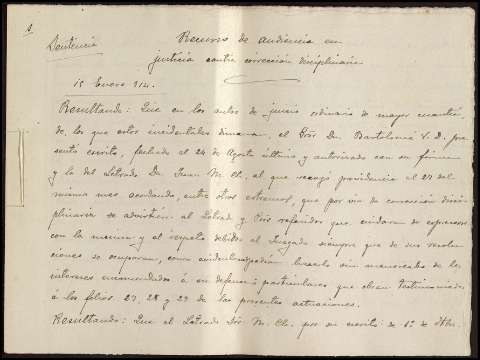 Sentencia
Recurso de audiencia en
justicia contra corrección disciplinaria
15 Enero 914.
Resultando: Que en los autos de juicio ordinario de mayor cuantía
de los que estos incidentales dimana, el Bartolomé V. D. pre
sentó escrito, fechado el 24 de Agosto último y autorizado con su firma
y la del Letrado Dn. Juan M. Ch. al que recayó providencia el 27 del
mismo mes acordando, entre otros extremos, que por vía de corrección disci
plinaria se advirtiera al Letrado y referidos que cuidaran de expresarse
con la mesura y el respeto debidos al Juzgado siempre que de sus resolu
ciones se ocuparan, como podían hacerlo sin menoscabo de los
intereses encomendados á su defensa; particulares que obran testimoniados
á los folios 27, 28 y 29 de las presentes actuaciones.
Resultando: Que el Letrado M. Ch. por su escrito de 1º de